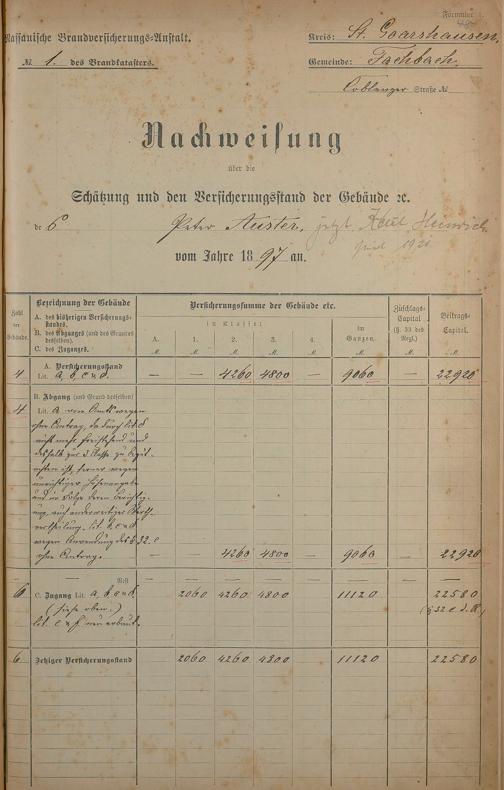 Formular
Nassauische Brandversicherungs-Anstalt.
Kreis: St. Goarshausen.
№ 1. des Brandkatasters.
Gemeinde: Fachbach.
Coblenzer Straße №
Nachweisung
über die
Schätzung und den Versicherungsstand der Gebäude ꝛc.
de s Peter Auster, jetzt Heinrich
1921
vom Jahre 1897 an.
Zahl der Gebäude.
Bezeichnung der Gebäude
A. des bisherigen Versicherungsstandes.
B. des Abganges (und des Grundes desselben).
C. des Zuganges.
Versicherungssumme der Gebäude etc.
in Klasse:
A. 1. 2. 3. 4. im Ganzen.
Zuschlags-Capital (§. 33 des Regl.)
Beitrags-Capital.
M. M. M. M. M. M. M. M.
A. Versicherungsstand
4 Lit. a, b, c & d. — — 4260 4800 — 9060 — 22920
B. Abgang (und Grund desselben)
4 Lit. a von Amtswegen
ohne Antrag, da durch lit. d
nicht mehr freistehend und
deshalb zur 3 Klasse zu
ist, ferner wegen
unrichtiger
und in Folge deren
ung, auch anderweitiger
vertheilung. lit. b, c & d
wegen Anwendung des § 32. c
ohne Antrag. — — 4260 4800 — 9060 — 22920
— Rest — — — — — — — —
6 C. Zugang Lit. a, b, c & d. 2060 4260 4800 11120 22580
(siehe oben.) (§ 32 c d. R)
lit. e & f neu erbaut.
6 Jetziger Versicherungsstand 2060 4260 4800 11120 22580